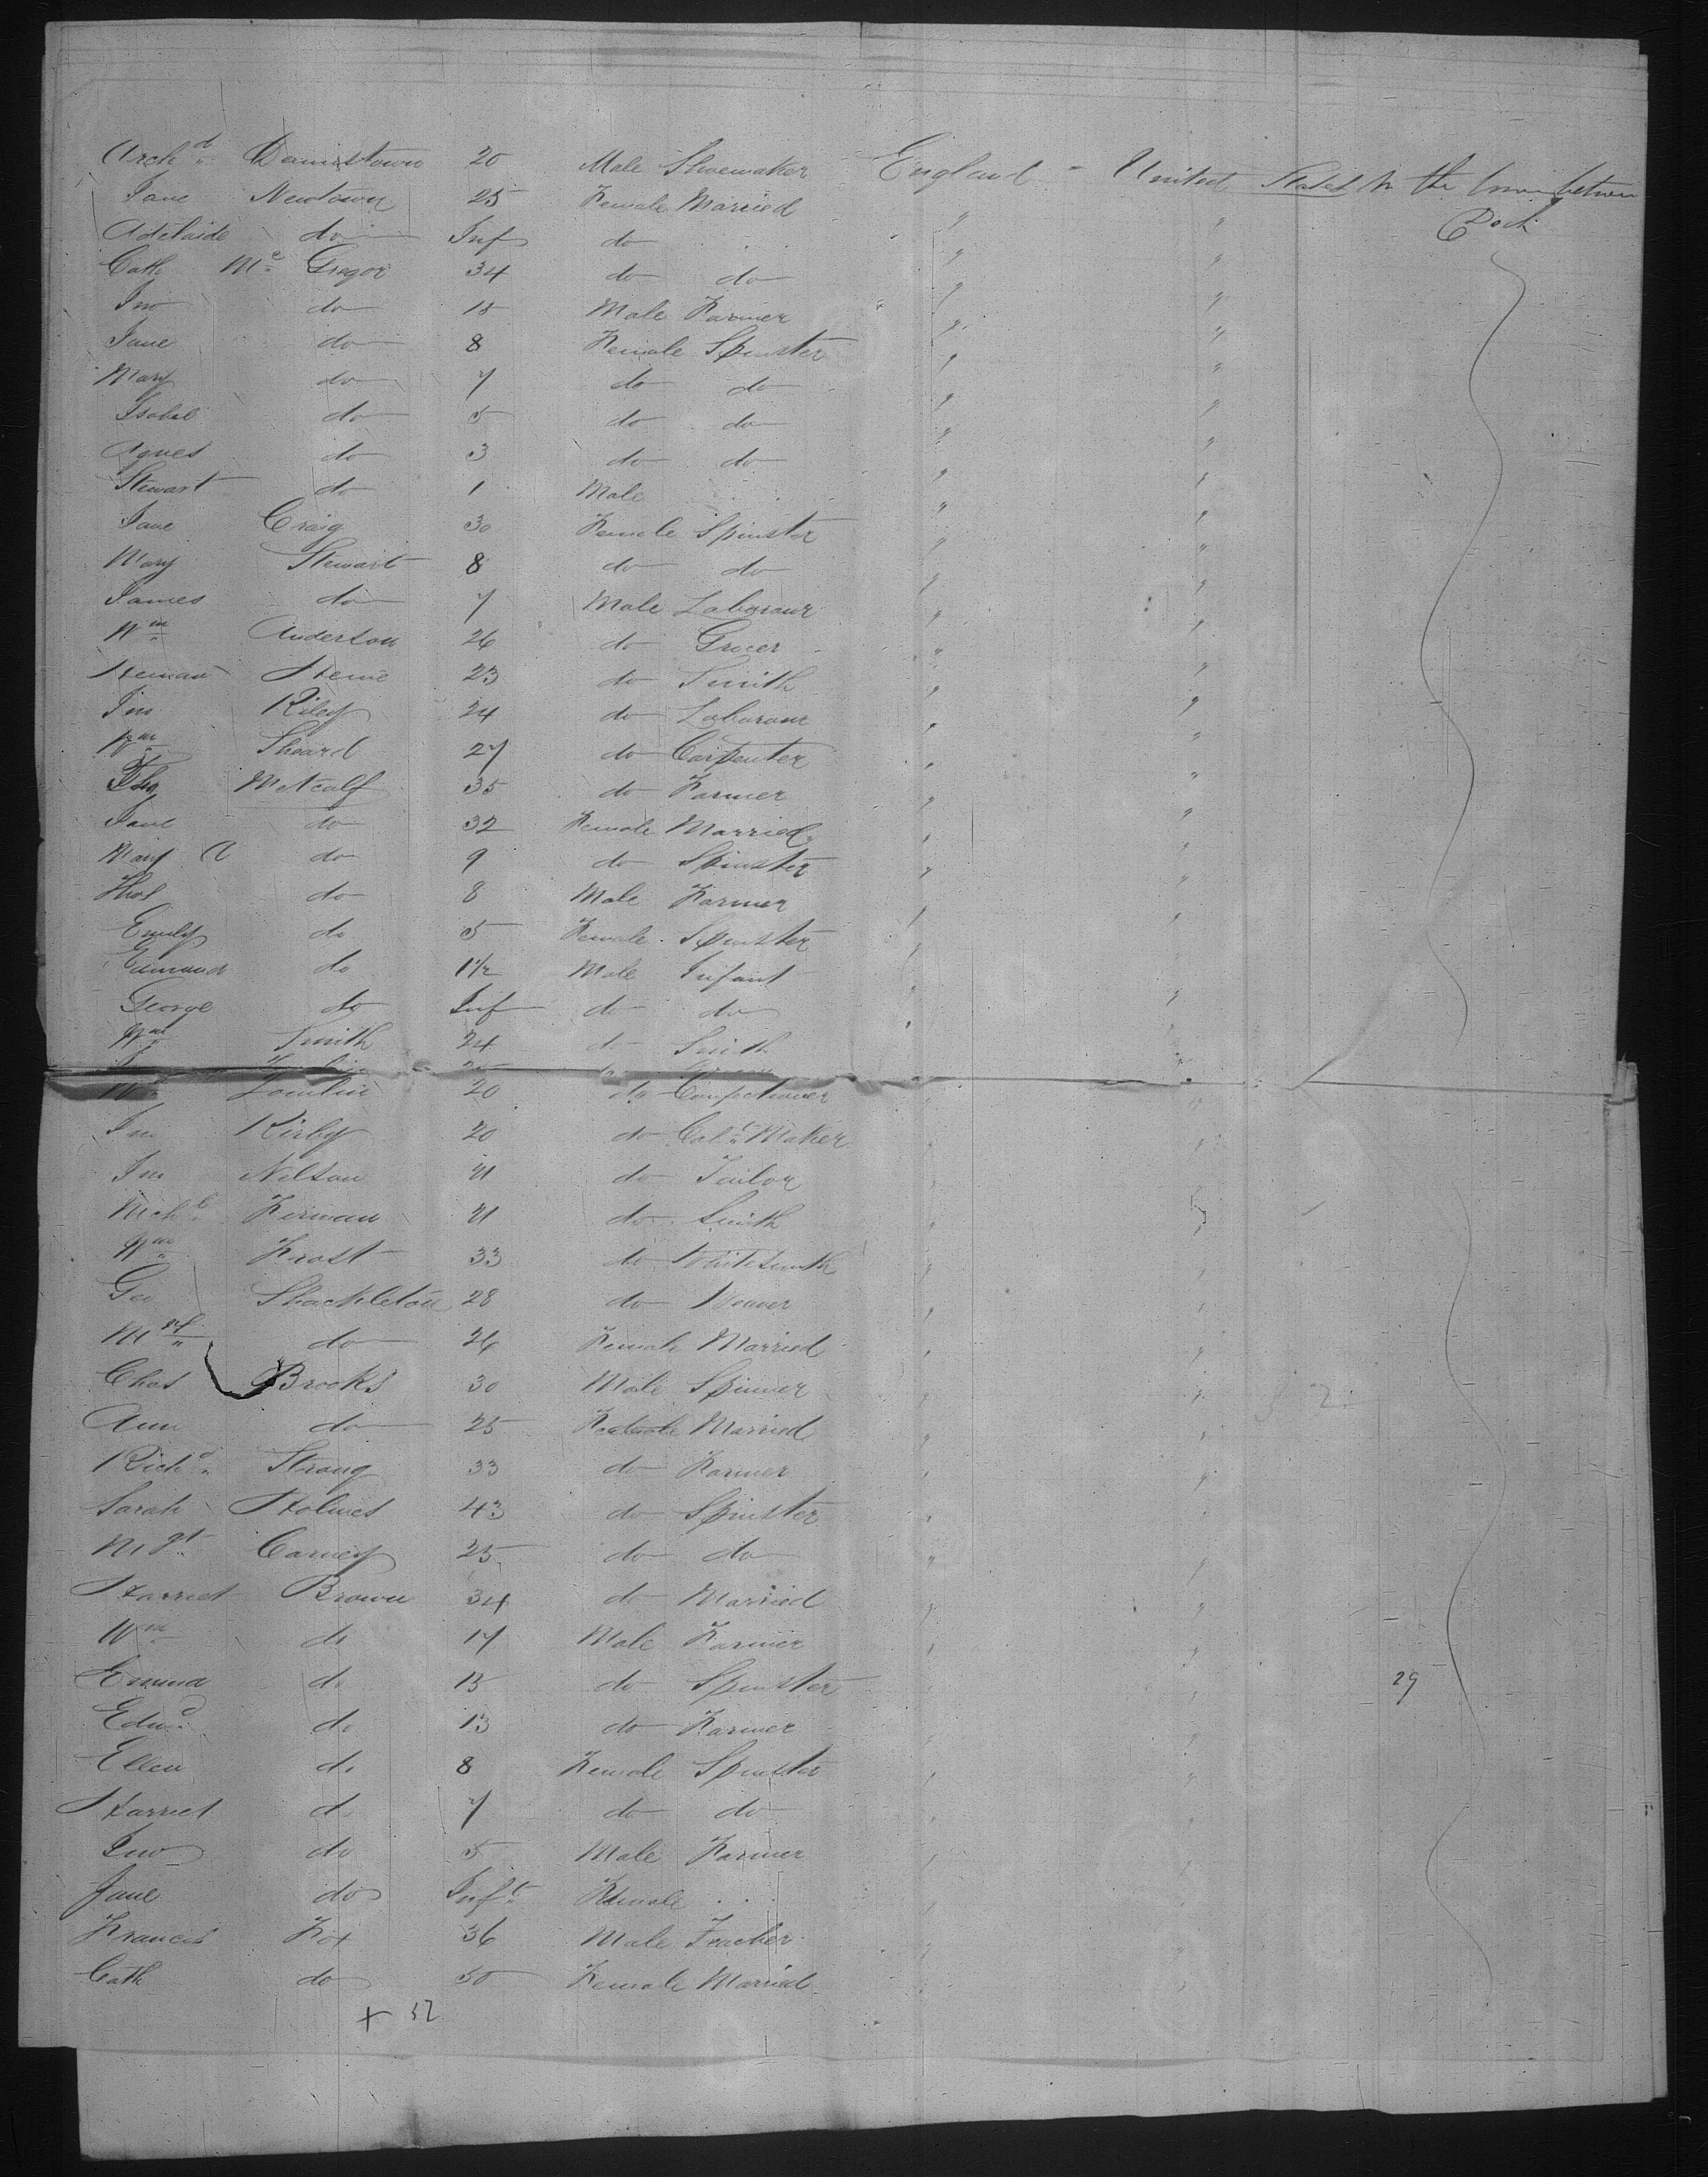 Arch^d Dennistown 20 Male Shoemaker England - United States In the between
Jane Newtown 25 Female Married " " Deck
Adelaide do Inf do " "
Cath M^c Gregor 34 do do " "
Jno do 15 Male Farmer " "
Jane do 8 Female Spinster " "
Mary do 7 do do " "
Isabel do 5 do do " "
Agnes do 3 do do " "
Stewart do 1 Male " "
Jane Craig 30 Female Spinster " "
Mary Stewart 8 do do " "
James do 7 Male Labourour " "
W^m Anderson 26 do Grocer " "
23 do Smith " "
Jno Riley 24 do Labourour " "
W^m Sheard 27 do Carpenter " "
Tho^s Metcalf 35 do Farmer " "
Jane do 32 Female Married " "
Mary A do 9 do Spinster " "
Thos do 8 Male Farmer " "
Emily do 5 Female Spinster " "
Edmund do 1 1/2 Male Infant " "
George do Inf do do " "
W^m Smith 24 do Smith " "
W^m Tomlin 20 do Confectioner " "
Jno Kirby 20 do Cab^t Maker " "
Jno Nelson 21 do Tailor " "
Mich^l Kernan 21 do Smith " "
W^m Frost 33 do Whitesmith " "
Geo Shackleton 28 do Weaver " "
M^gt do 26 Female Married " "
Chas Brooks 30 Male Spinner " "
Ann do 25 Female Married " "
Rich^d Strong 33 do Farmer " "
Sarah Holmes 43 do Spinster " "
M^gt Carney 25 do do " "
Harriet Brown 34 do Married " "
W^m do 17 Male Farmer " "
Emma do 15 do Spinster " " 29
Edw^d do 13 do Farmer " "
Ellen do 8 Female Spinster " "
Harriet do 7 do do " "
Jno do 5 Male Farmer " "
Jane do Inf^t Female " "
Francis Fox 36 Male Teacher " "
Cath do 50 Female Married " "
+ 52